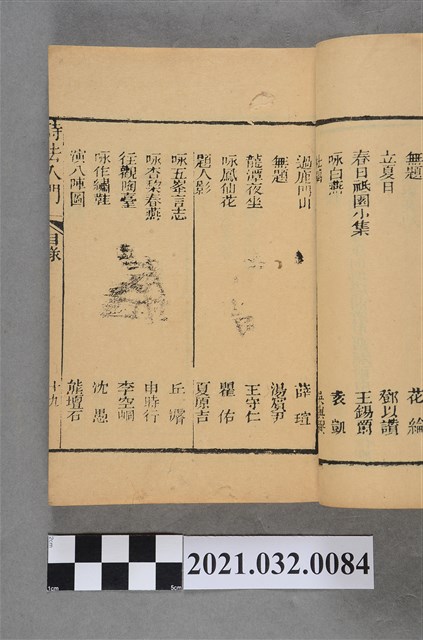 無題 花綸
立夏日 鄧以讚
春日祇園小集 王錫爵
咏白燕 袁凱
過鹿門山 薛瑄
無題 湯賓尹
龍潭夜坐 王守仁
咏鳳仙花 瞿佑
題人影 夏原吉
咏五峯言志 丘濬
咏杏梨春燕 申時行
往觀陶臺 李空峒
咏作繡鞋 沈愚
演八陣圖 熊壇石
詩法入門 目錄 十九
2021.032.0084
1cm 5cm